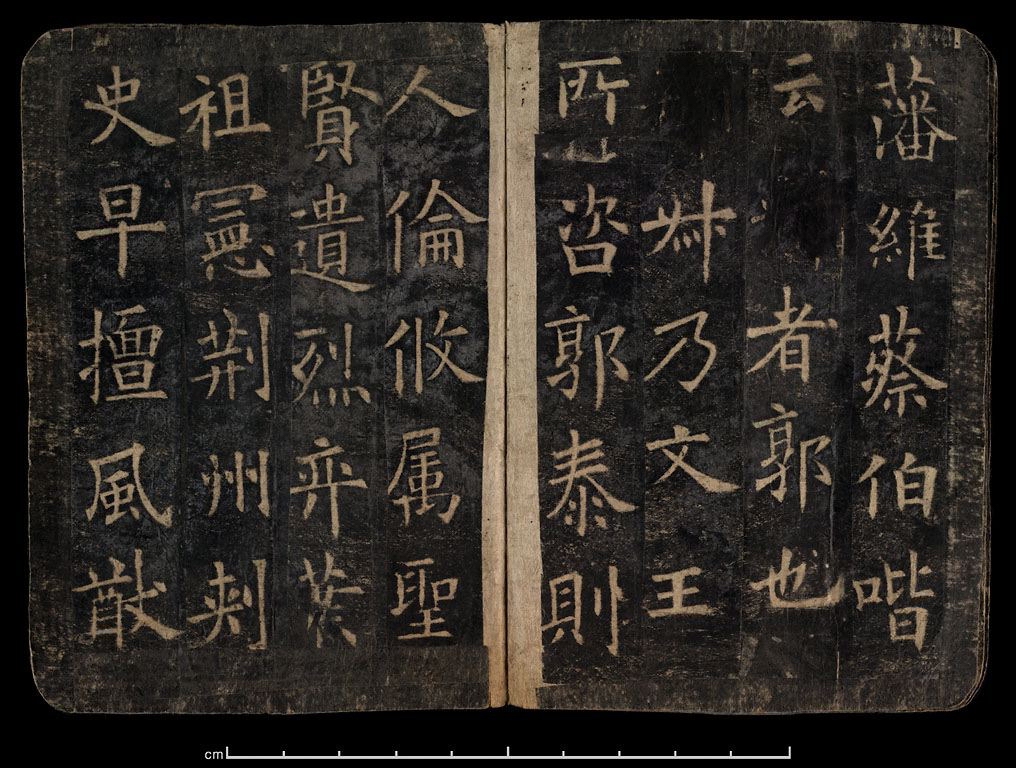 藩維蔡伯喈
云者郭也
叔乃文王
所咨郭泰則
人倫攸属聖
賢遺烈弈葉
祖憲荆州刺
史早擅風猷
cm